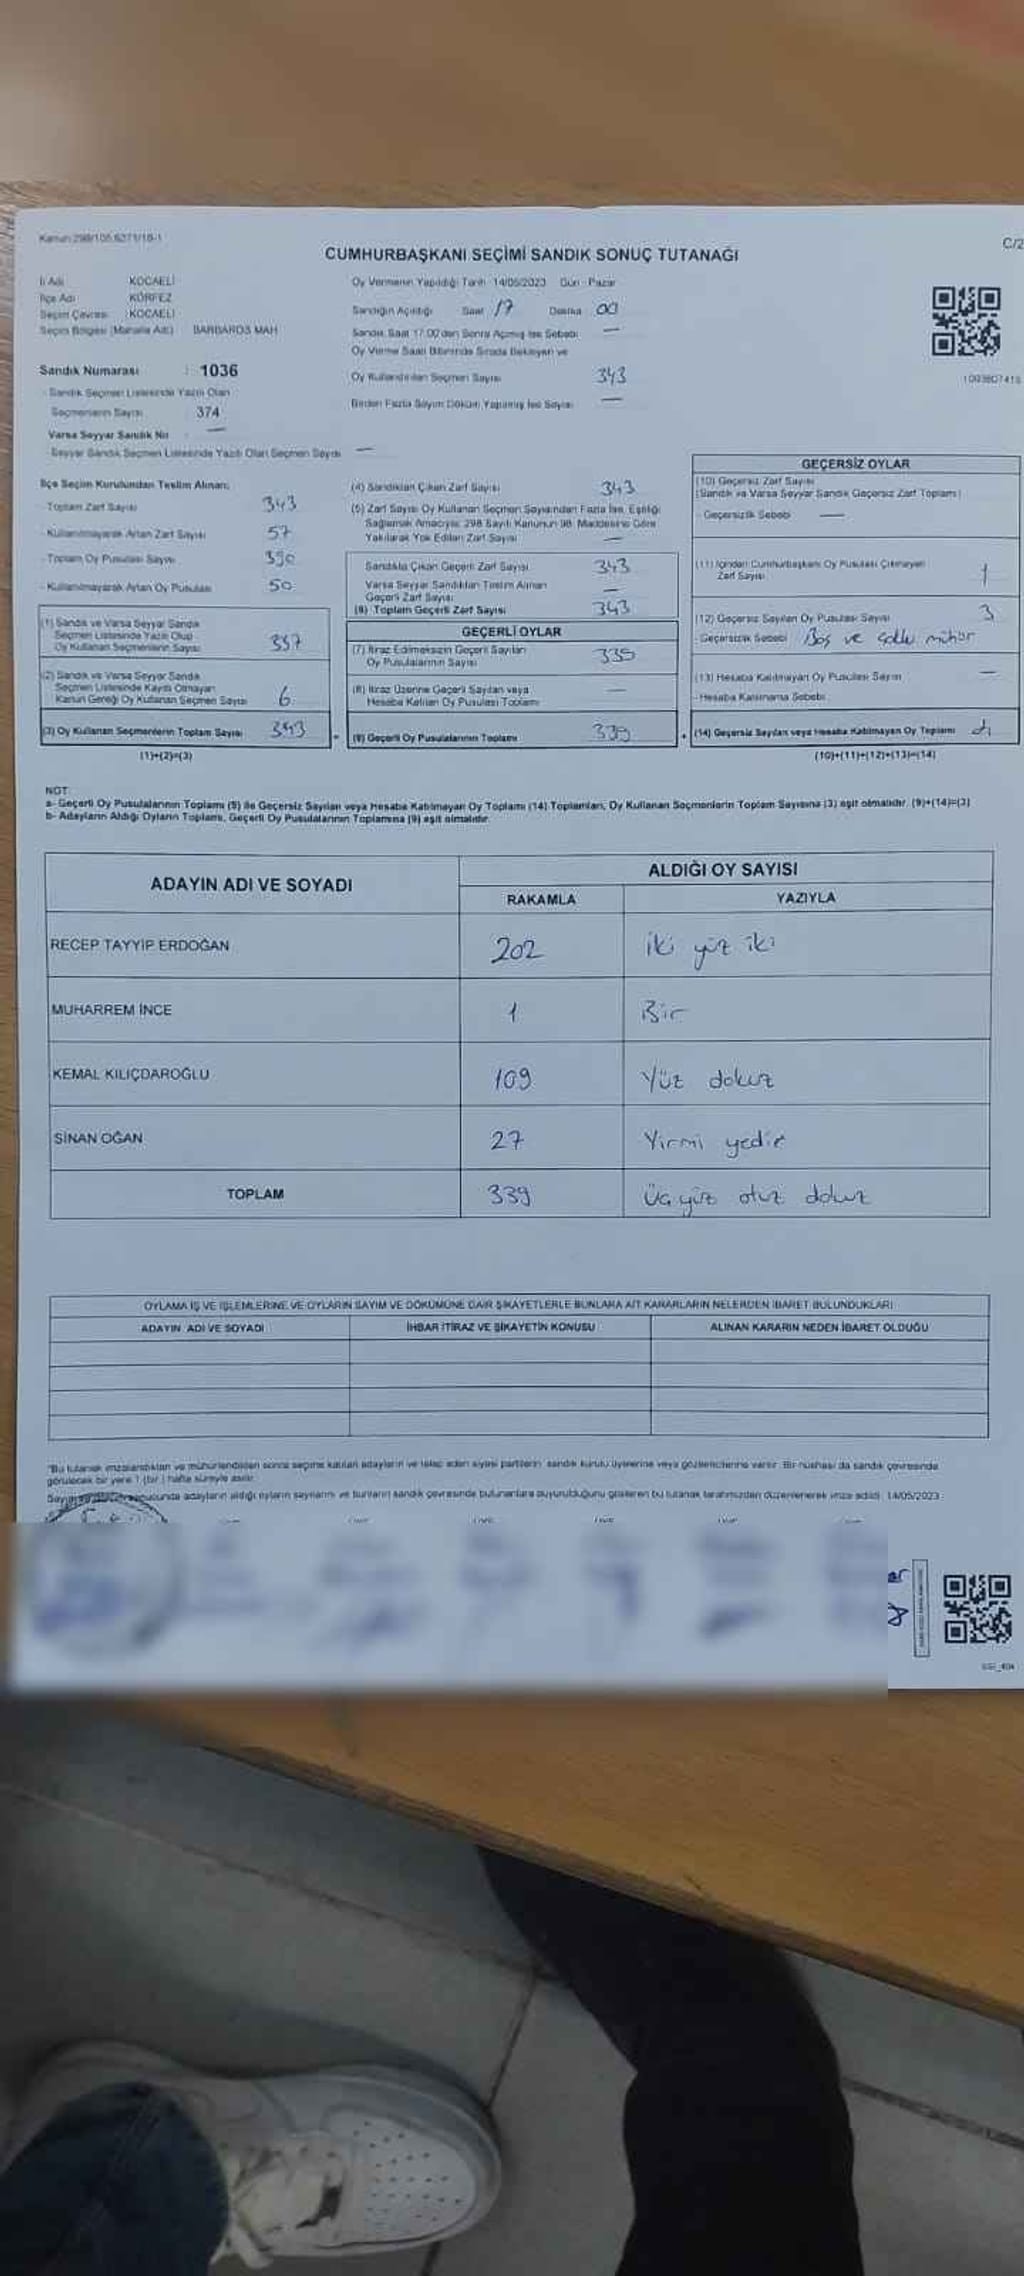 Kanun:298/105,6271/18-1
C/2
CUMHURBAŞKANI SEÇİMİ SANDIK SONUÇ TUTANAĞI
İl Adı : KOCAELİ
İlçe Adı : KÖRFEZ
Seçim Çevresi : KOCAELİ
Seçim Bölgesi (Mahalle Adı) : BARBAROS MAH.
Sandık Numarası : 1036
- Sandık Seçmen Listesinde Yazılı Olan
Seçmenlerin Sayısı : 374
Varsa Seyyar Sandık No : —
- Seyyar Sandık Seçmen Listesinde Yazılı Olan Seçmen Sayısı —
Oy Vermenin Yapıldığı Tarih : 14/05/2023 Gün : Pazar
Sandığın Açıldığı Saat 17 Dakika 00
Sandık Saat 17.00'den Sonra Açılmış İse Sebebi —
Oy Verme Saati Bitiminde Sırada Bekleyen ve
Oy Kullandırılan Seçmen Sayısı 343
Birden Fazla Sayım Döküm Yapılmış İse Sayısı —
İlçe Seçim Kurulundan Teslim Alınan;
- Toplam Zarf Sayısı 343
- Kullanılmayarak Artan Zarf Sayısı 57
- Toplam Oy Pusulası Sayısı 390
- Kullanılmayarak Artan Oy Pusulası 50
(1) Sandık ve Varsa Seyyar Sandık
Seçmen Listesinde Yazılı Olup
Oy Kullanan Seçmenlerin Sayısı 337
(2) Sandık ve Varsa Seyyar Sandık
Seçmen Listesinde Kayıtlı Olmayan
Kanun Gereği Oy Kullanan Seçmen Sayısı 6
(3) Oy Kullanan Seçmenlerin Toplam Sayısı 343
(1)+(2)=(3)
(4) Sandıktan Çıkan Zarf Sayısı 343
(5) Zarf Sayısı Oy Kullanan Seçmen Sayısından Fazla İse, Eşitliği
Sağlamak Amacıyla 298 Sayılı Kanunun 98. Maddesine Göre
Yakılarak Yok Edilen Zarf Sayısı —
Sandıkta Çıkan Geçerli Zarf Sayısı 343
Varsa Seyyar Sandıktan Teslim Alınan
Geçerli Zarf Sayısı —
(6) Toplam Geçerli Zarf Sayısı 343
GEÇERLİ OYLAR
(7) İtiraz Edilmeksizin Geçerli Sayılan
Oy Pusulalarının Sayısı 339
(8) İtiraz Üzerine Geçerli Sayılan veya
Hesaba Katılan Oy Pusulası Toplamı —
(9) Geçerli Oy Pusulalarının Toplamı 339
GEÇERSİZ OYLAR
(10) Geçersiz Zarf Sayısı
(Sandık ve Varsa Seyyar Sandık Geçersiz Zarf Toplamı)
- Geçersizlik Sebebi —
(11) İçinden Cumhurbaşkanı Oy Pusulası Çıkmayan
Zarf Sayısı 1
(12) Geçersiz Sayılan Oy Pusulası Sayısı 3
- Geçersizlik Sebebi Boş ve mühür
(13) Hesaba Katılmayan Oy Pusulası Sayısı —
- Hesaba Katılmama Sebebi
(14) Geçersiz Sayılan veya Hesaba Katılmayan Oy Toplamı
(10)+(11)+(12)+(13)=(14)
NOT:
a- Geçerli Oy Pusulalarının Toplamı (9) ile Geçersiz Sayılan veya Hesaba Katılmayan Oy Toplamı (14) Toplamları, Oy Kullanan Seçmenlerin Toplam Sayısına (3) eşit olmalıdır. (9)+(14)=(3)
b- Adayların Aldığı Oyların Toplamı, Geçerli Oy Pusulalarının Toplamına (9) eşit olmalıdır.
ADAYIN ADI VE SOYADI
ALDIĞI OY SAYISI
RAKAMLA YAZIYLA
RECEP TAYYİP ERDOĞAN 202 iki yüz iki
MUHARREM İNCE 1 Bir
KEMAL KILIÇDAROĞLU 109 Yüz dokuz
SİNAN OĞAN 27 Yirmi yedi
TOPLAM 339 Üçyüz otuz dokuz
OYLAMA İŞ VE İŞLEMLERİNE VE OYLARIN SAYIM VE DÖKÜMÜNE DAİR ŞİKAYETLERLE BUNLARA AİT KARARLARIN NELERDEN İBARET BULUNDUKLARI
ADAYIN ADI VE SOYADI İHBAR İTİRAZ VE ŞİKAYETİN KONUSU ALINAN KARARIN NEDEN İBARET OLDUĞU
*Bu tutanak imzalandıktan ve mühürlendikten sonra seçime katılan adayların ve talep eden siyasi partilerin sandık kurulu üyelerine veya gözlemcilerine verilir. Bir nüshası da sandık çevresinde
görülecek bir yere 1 (bir) hafta süreyle asılır.
adayların aldığı oyların sayılarını ve bunların sandık çevresinde bulunanlara duyurulduğunu gösteren bu tutanak tarafımızdan düzenlenerek imza edildi. 14/05/2023